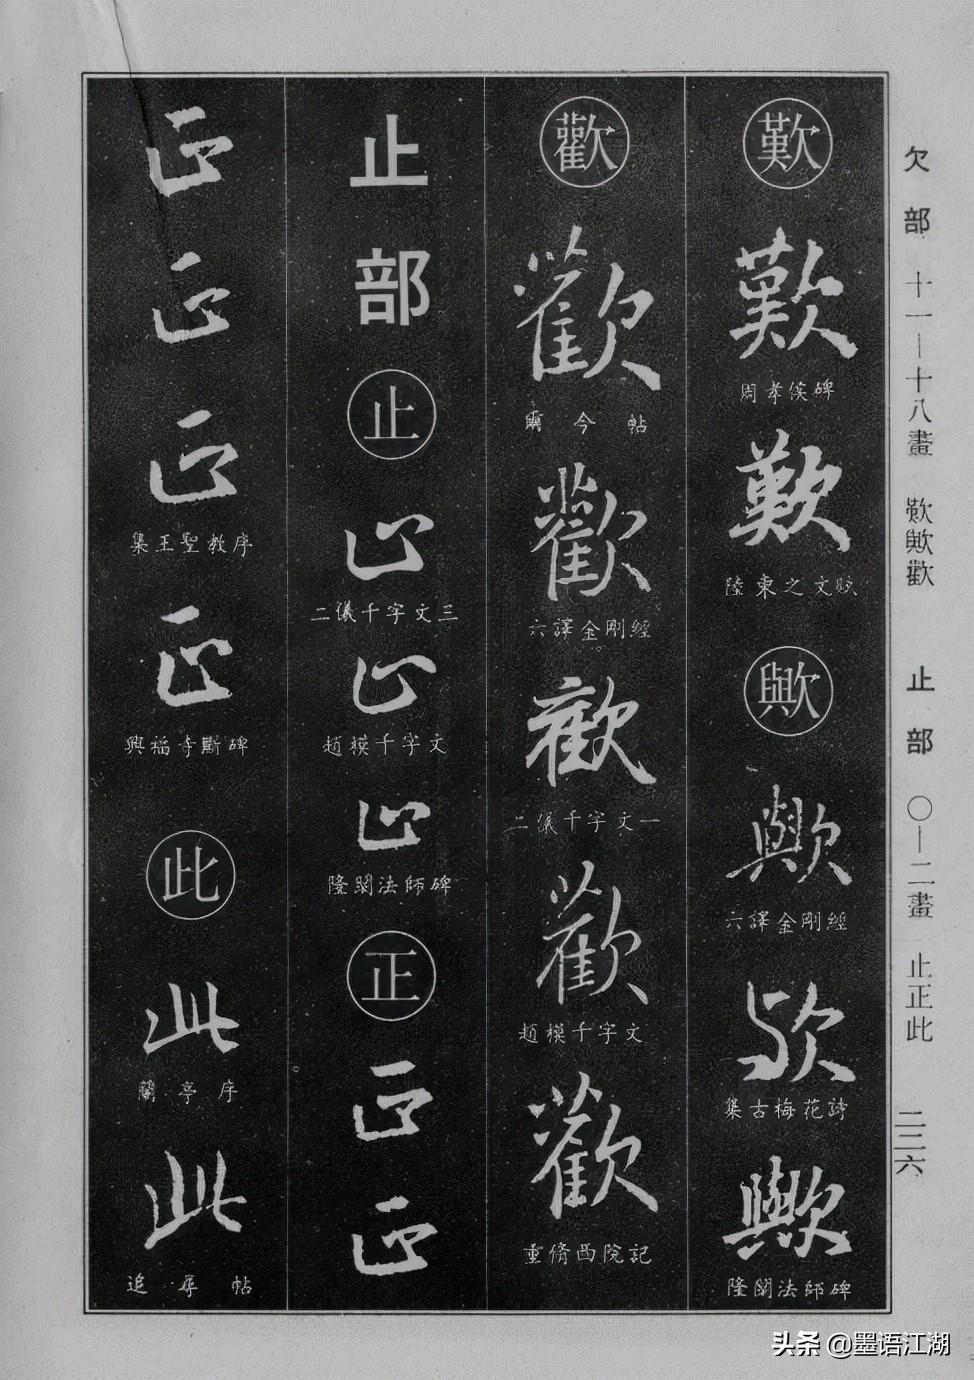 欠部 十一—十八畫 歎歟歡 止部 〇—二畫 止正此 二二六
歎
歎
周孝侯碑
歎
陸柬之文賦
歟
歟
六譯金剛經
歟
集古梅花詩
歟
隆闡法師碑
歡
歡
霜今帖
歡
六譯金剛經
歡
二儀千字文一
歡
趙模千字文
歡
重脩西院記
止部
止
止
二儀千字文三
止
趙模千字文
止
隆闡法師碑
正
正
正
正
正
正
集王聖教序
正
興福寺斷碑
此
此
蘭亭序
此
追尋帖
头条 @墨语江湖